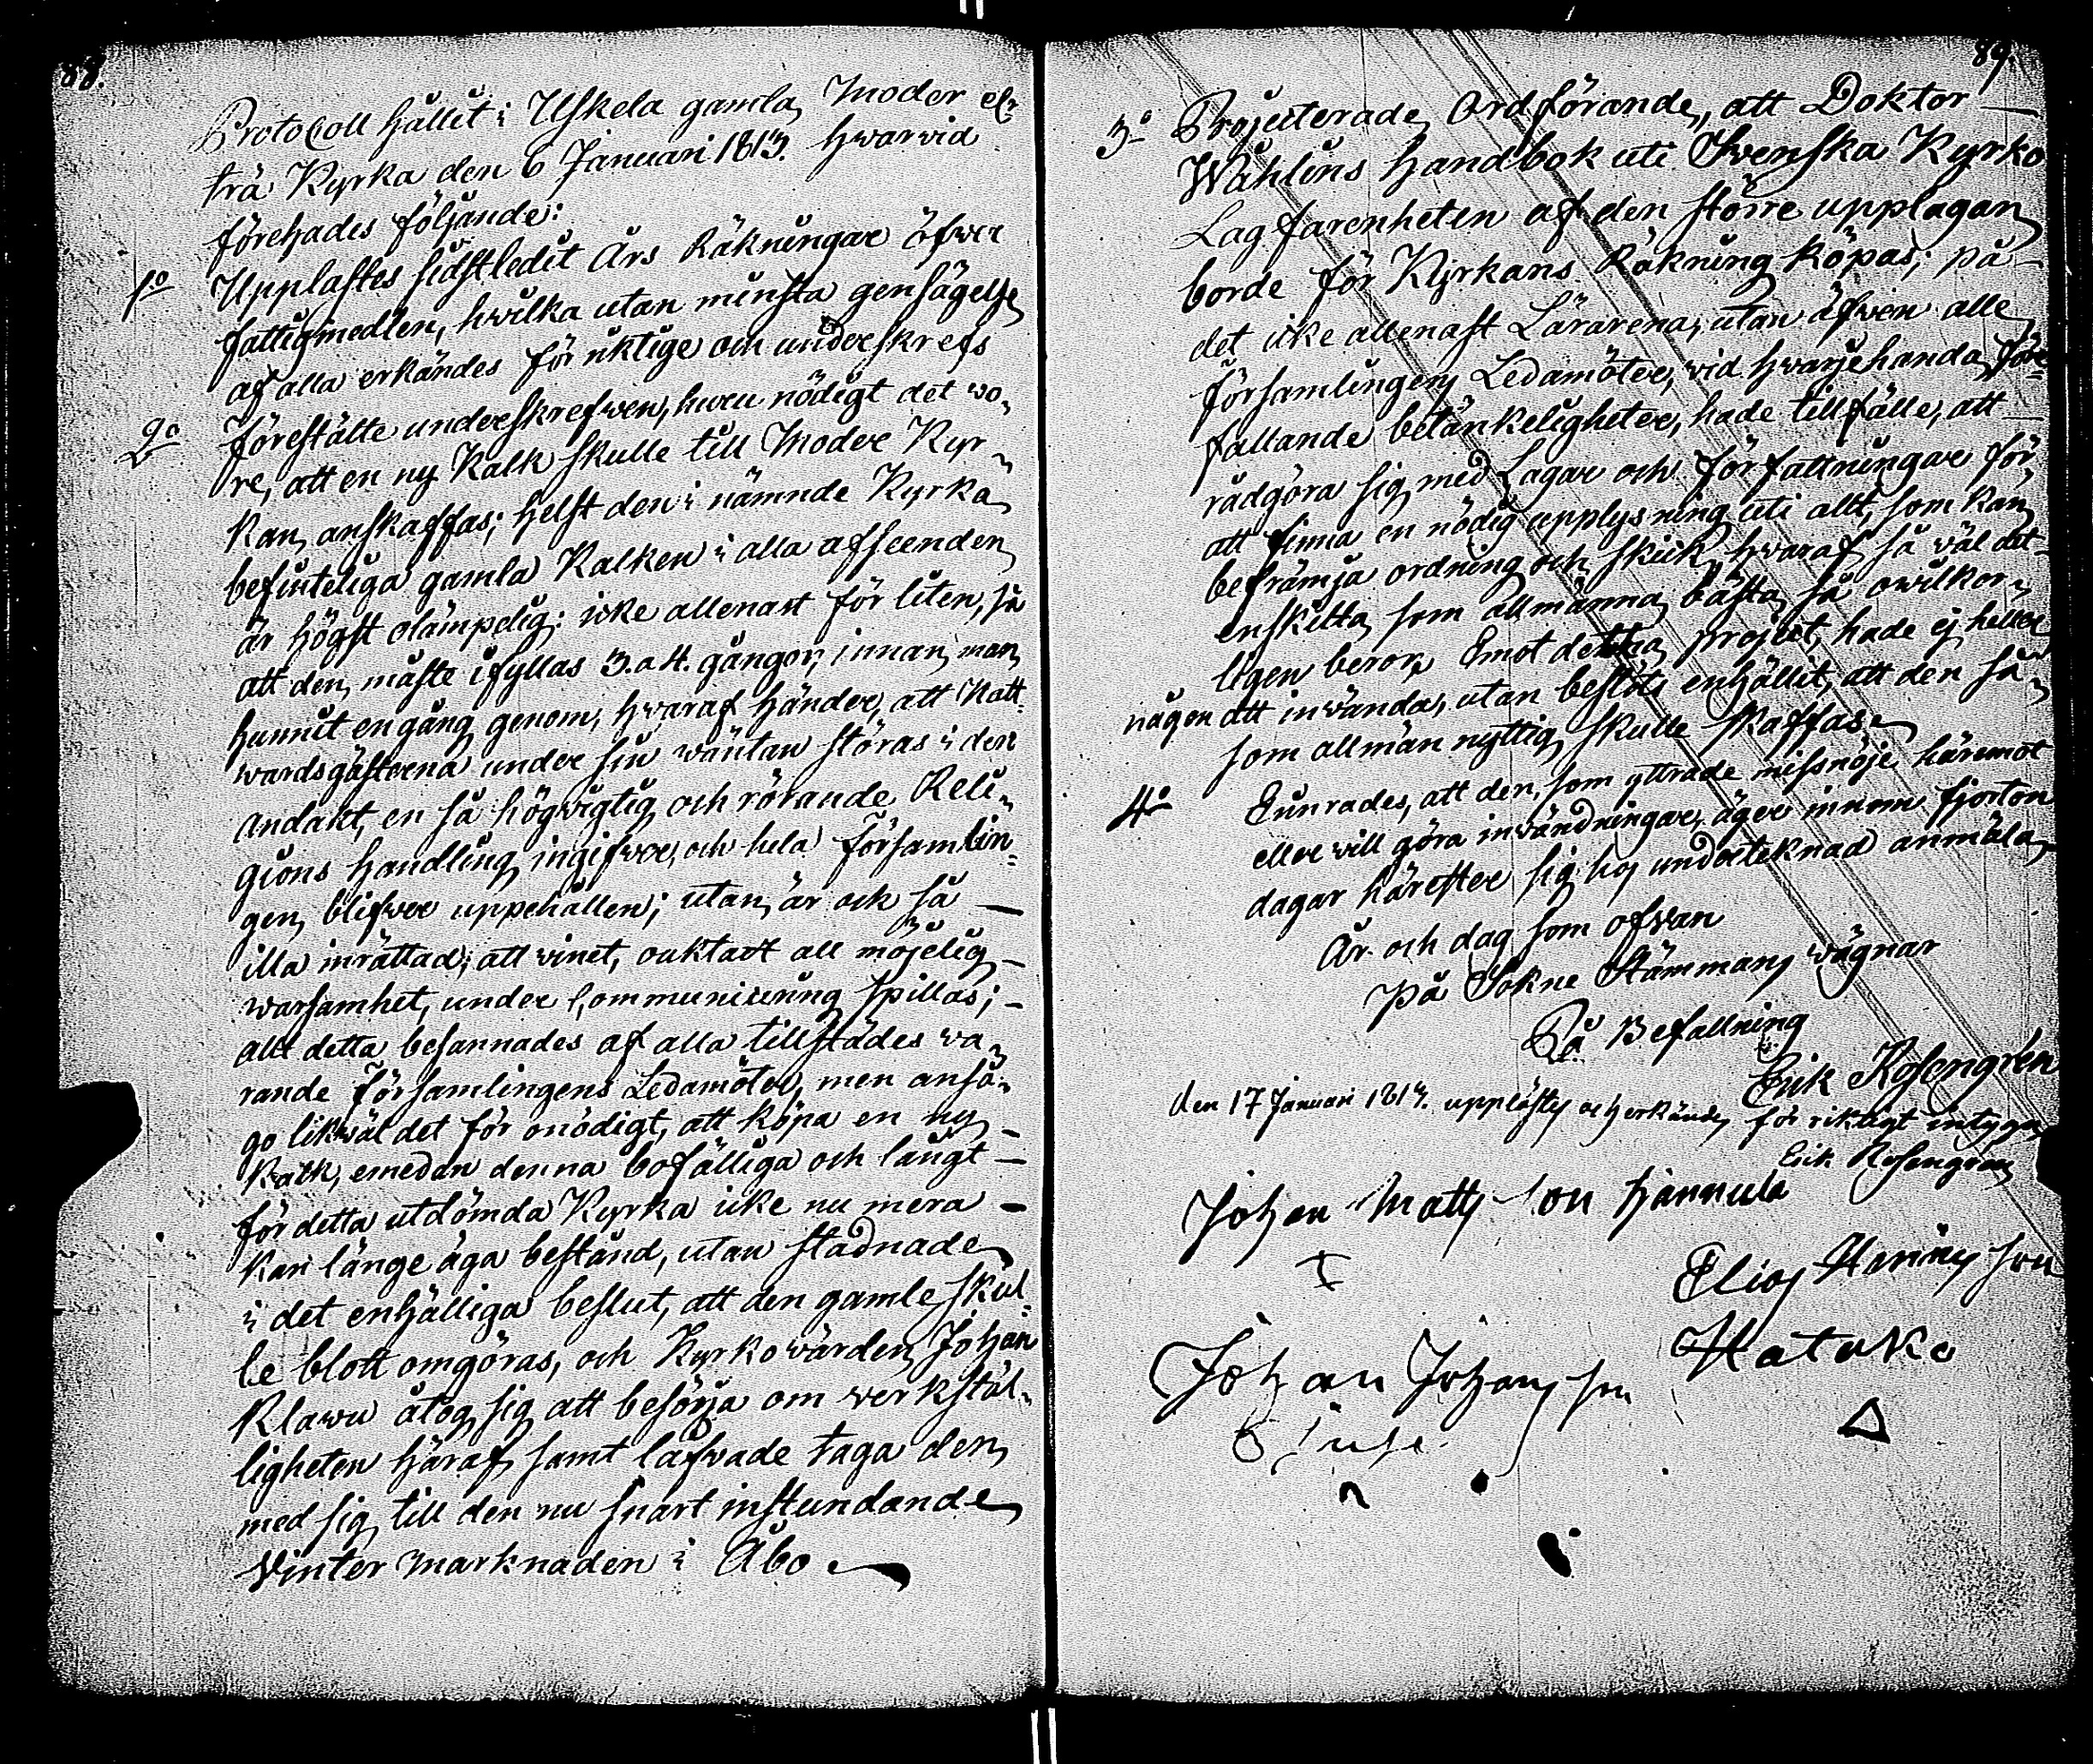 88.
Protocoll hållit i Uskela gamla Moder el:
trä Kyrka den 6 Januari 1813. hwarvid
förehades följande:
1o Upplästes sidstledit Års Räkningar öfwer
fattigmedlen, hwilka utan minsta gensägelse
af alla erkändes för riktige och underskrefs
2o Förestälte underskrefwen, huru nödigt det vo-
re, att en ny Kalk skulle till Moder Kyr-
kan anskaffas; helst den i nämnde Kyrka
befinteliga gamla Kalken i alla afseenden
är högst olämpelig: icke allenast för liten, så
att den måste ifyllas 3. a 4. gånger, innan man
hunnit en gång genom, hvaraf händer, att Natt-
wardsgästerna under sin wäntan störas i den
andakt, en så högwigtig och rörande Reli-
gions handling ingifwer, och hela Församlin-
gen blifwer uppehållen; utan är ock så
illa inrättad, att vinet, oaktadt all möjelig
warsamhet, under Communicering spillas;
allt detta besannades af alla tillstädes va-
rande Församlingens Ledamöter, men anså-
go likwäl det för onödigt, att köpa en ny
Kalk, emedan denna bofälliga och längt
för detta utdömda Kyrka icke nu mera
kan länge äga bestånd, utan stadnade
i det enhälliga beslut, att den gamle skul-
le blott omgöras, och Kyrkowärden Johan
Klawu åtog sig att besörja om werkstäl-
ligheten häraf samt lafvade taga den
med sig till den nu snart instundande
Vinter marknaden i Åbo
89.
3o Projecterade Ordförande, att Doktor
Wåhlins Handbok uti Svenska Kyrko
Lagfarenheten af den större upplagan
borde för Kyrkans Räkning köpas; på
det icke allenast Lärarena, utan äfwen alle
Församlingens Ledamöter, vid hwarjehanda före-
fallande betänkeligheter, hade tillfälle, att
rådgöra sig med Lagar och Författningar för
att finna en nödig upplysning uti allt, som kan
befrämja ordning och skick, hvaraf så väl det
enskilta som allmänna bästa så owilkor-
ligen beror. Emot detta project, hade ej heller
någon att invända, utan beslöts enhällit, att den så-
som allmän nyttig skulle skaffas.
4o Einrades, att den, som yttrade missnöje häremot
eller vill göra inwändningar, äger innom fjorton
dagar härefter sig hos undertecknad anmäla,
År och dag som ofvan
På Sokne Stämmans wägnar
På Befallning
Erik Rosengrén
den 17 Januari 1813. upplästes och erkändes för riktigt intygas
Erik Rosengren
Johan Matts son Hannula
Elias Henrics son
Hatako
Johan Johans son